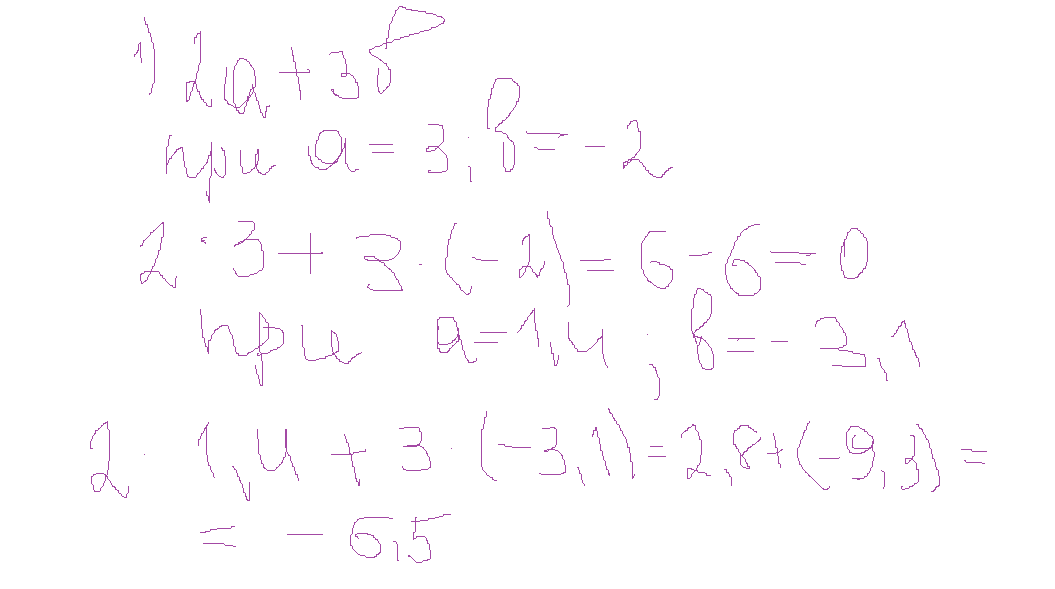 1) 2a + 3б
при a = 3; b = - 2
2 · 3 + 3 · (- 2) = 6 - 6 = 0
при a = 1,4; b = - 3,1
2 · 1,4 + 3 · (- 3,1) = 2,8 + (- 9,3) =
= - 6,5